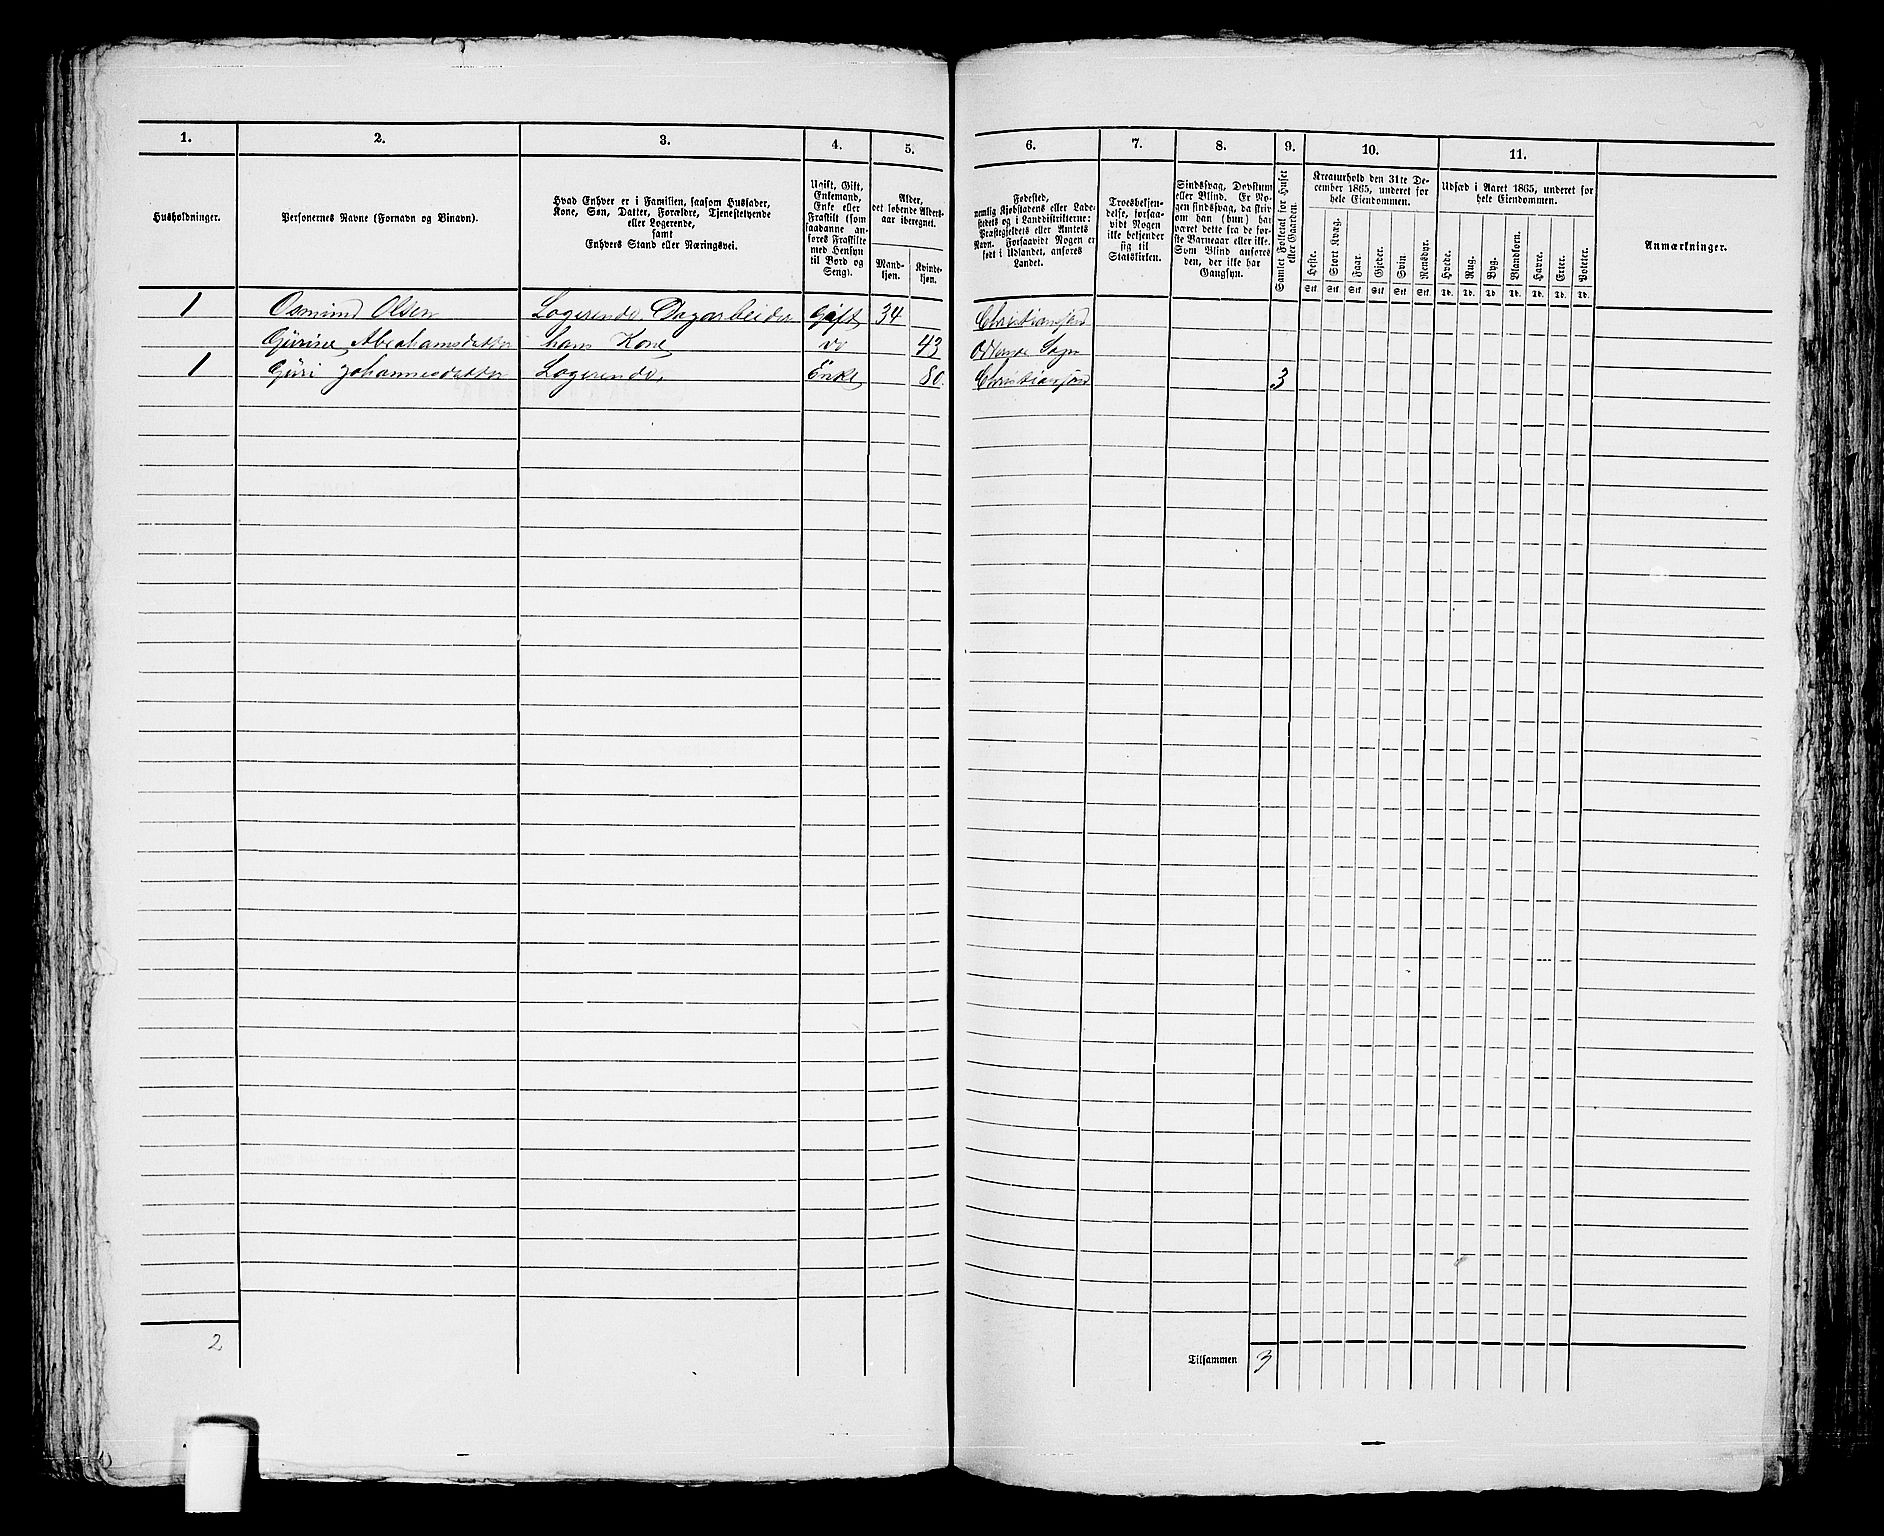 1. 2. 3. 4. 5. 6. 7. 8. 9. 10. 11.
Husholdninger.
Personernes Navne (Fornavn og Binavn).
Hvad Enhver er i Familien, saasom Husfader,
Kone, Søn, Datter, Forældre, Tjenestetyende
eller Logerende,
samt
Enhvers Stand eller Næringsvei.
Ugift, Gift,
Enkemand,
Enke eller
Fraskilt (som
saadanne an-
føres Fraskilte
med Hensyn
til Bord og
Seng).
Alder,
det løbende Alders-
aar iberegnet.
Mand-
kjøn.
Kvinde-
kjøn.
Fødested,
nemlig Kjøbstadens eller Lade-
stedets og i Landdistrikterne:
Præstegjeldets eller Amtets
Navn. Forsaavidt Nogen er
født i Udlandet, anføres
Landet.
Troesbekjen-
delse, forsaa-
vidt Nogen
ikke bekjender
sig til
Statskirken.
Sindssvag, Døvstum
eller Blind. Er No-
gen sindssvag, da skriv
om han (hun) har
været dette fra de før-
ste Barneaar eller ikke.
Som Blind anføres
den, der ikke har
Gangsyn.
Samlet Folketal for Huset
eller Gaarden.
Kreaturhold den 31te De-
cember 1865, underet for
hele Eiendommen.
Heste. Stort Kvæg. Faar. Gjeder. Svin. Rensdyr.
Stk. Stk. Stk. Stk. Stk. Stk.
Udsæd i Aaret 1865, underet for
hele Eiendommen.
Hvede. Rug. Byg. Blandkorn. Havre. Erter. Poteter.
Td. Td. Td. Td. Td. Td. Td.
Anmærkninger.
1 Osmund Olsen Logerende, Dagarbeider Gift 34 Christiansand
Gurine Abrahamsdatter hans Kone do 43 Sogn
1 Guri Johannesdatter Logerende, Enke 80. Christiansand 3
2
Tilsammen 3